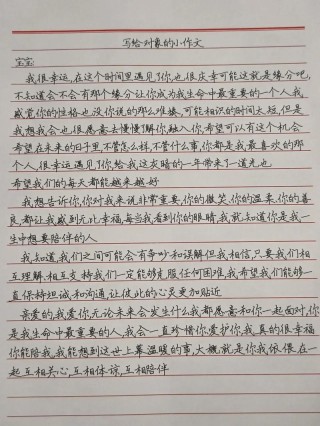 写给对象的小作文
宝宝
我很幸运,在这个时间里遇见了你,也很庆幸可能这就是缘分吧,
不知道会不会有那个缘分让你成为我生命中最重要的一个人,我
感觉你的性格也没你说的那么难搞,可能相识的时间太短,但是
我想我会也很愿意去慢慢了解你,融入你,希望可以有这个机会
希望在未来的日子里,不管怎么样,不管什么事,你都是我最喜欢的那
个人,很幸运遇见了你,给我这灰暗的一年带来了一道光也
希望我们的每天都能越来越好
我想告诉你,你对我来说非常重要,你的微笑,你的温柔,你的善
良,都让我感到无比幸福,每当我看到你的眼睛,我就知道你是我一
生中想要陪伴的人
我知道,我们之间可能会有争吵和误解但我相信,只要我们相
互理解,相互支持我们一定能够克服任何困难,我希望我们能够一
直保持坦诚和沟通,让彼此的心灵更加贴近
亲爱的,我爱你,无论未来会发生什么我都愿意和你一起面对,你
是我生命中最重要的人,我会一直珍惜你,爱护你,我真的很幸福
你能陪我,我能想到这世上最温暖的事,大概就是你我依偎在一
起互相关心,互相体谅,互相陪伴